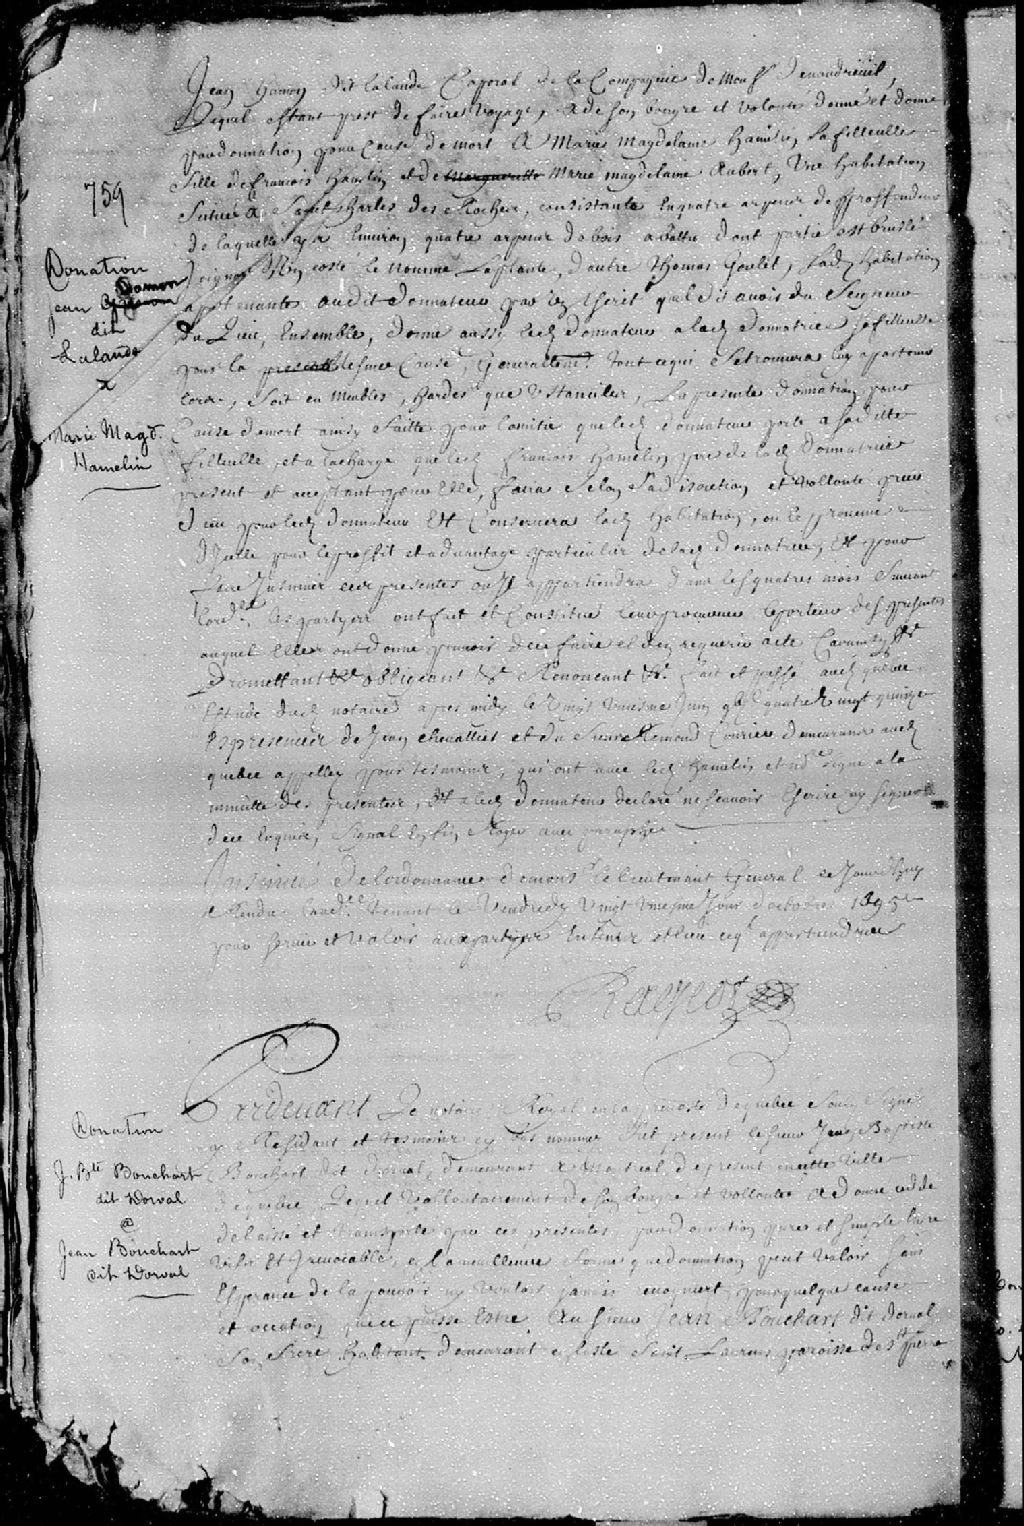 Jean Gamon dit Lalande Caporal de la Compagnie de Mons.r de vaudreuil,
Lequel estant prest de faire voyage, a de son bon gré et volonté donné et donne
par donnation pour Cause de mort A Marie Magdelaine Hamelin sa filleulle
fille de francois Hamelin et de Marguerite Marie magdelaine Aubert, Une habitation
Scituée à Saint Charles des Roches, consistante en quatre arpens de
de laquelle y a Environ quatre arpens de bois abattu dont partie est bruslé
joignant d'un costé le nommé Laplante, d'autre Thomas Goulet, Lad. habitation
apartenante audit donnateur par quil dit avoir du Seigneur
du Lieu, Ensemble, donne aussy led. donnateur a lad. donnatrice sa filleulle
pour la mesme Cause, Generallem.t tout ce qui se trouvera luy apartenir
soit en Meubles, hardes que Ustancilles, La presente donnation pour
Cause de mort ainsy faitte pour l'amitié que led. donnateur porte a sa ditte
filleulle, et a la charge que led. francois Hamelin pere de lad. Donnatrice
present et acceptant pour Elle, faira selon sa discretion et vollonté prier
dieu pour led. donnateur Et Conservera lad. habitation, ou le provenu
d'Icelle pour le proffit et advantage particulier de lad. donnatrice, Et pour
faire Insinuer ces presentes ou Il appartiendra dans les quatres mois suivant
Lord.ce les partyes ont fait et Constitué leur procureur le porteur des presentes
auquel Elles ont donné pouvoir de ce faire et d'en requerir acte Car ainsy &c
Promettant &c obligeant &c Renoncant &c. fait et passé aud. quebec
Estude dud. notaire apres midy le Vingt uniesme Juin g.bic quatre vingt quinze
Es presences de Jean Chevallier et du Sieur Remond Courier demeurans aud.
quebec appellez pour tesmoins, qui ont avec led. hamelin et nd.re signé a la
minutte des presentes, Et a led. donnateur declaré ne scavoir Escrire ny signer
de ce Enquis, Signé Roger avec paraphe
Insinué de l'ordonnance de mons.r le lieutenant General de
Rendue Laud.ce tenant le Vendredy Vingt uniesme Jour d'octobre 1695
pour servir et valoir aux partyes En temps et lieu ce q.l appartiendra
Rageot
759
Donation
Jean Gamon
dit
Lalande
x
Marie Magd.
Hamelin
Pardevant Le notaire Royal en la prevosté de quebec Sous Signé
y Residant et tesmoins cy bas nommez fut present le sieur Jean Baptiste
Bouchart dit dorval, demeurant A Montreal de present en cette ville
de quebec, Lequel vollontairement de son bon gré et vollonté A donné cedde
delaisse et transporte par ces presentes par donnation pure et simple entre
vifs Et Irrevocable, en la meilleure forme que donnation peut valoir sans
Esperance de la pouvoir ny vouloir jamais revoquer, pour quelque cause
et occation que ce puisse Estre Au sieur Jean Bouchart dit dorval
Son frere habitant demeurant en l'isle Saint Laurens paroisse de S.t pierre
Donation
J. B.te Bouchart
dit Dorval
@
Jean Bouchart
dit Dorval